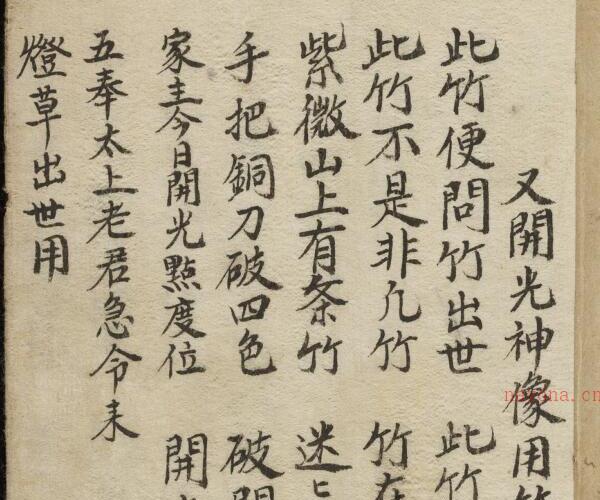 又開光神像用竹
此竹便問竹出世 此竹
此竹不是非凡竹 竹在
紫微山上有条竹 迷〻
手把銅刀破四色 破開
家主今日開光點度位 開
五奉太上老君急令末
燈草出世用